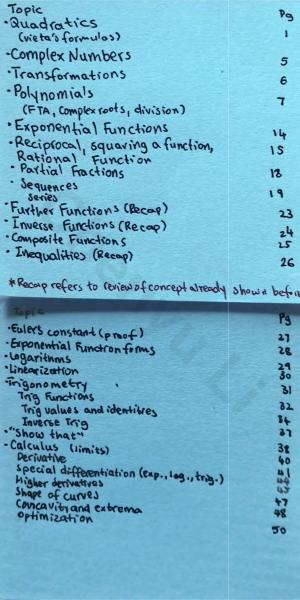 Topic Pg
·Quadratics 1
(vieta's formulas)
·Complex Numbers 5
·Transformations 6
·Polynomials 7
(FTA, Complex roots, division)
·Exponential Functions 14
·Reciprocal, squaring a function, 15
Rational Function
·Partial Fractions 18
·Sequences 19
Series
·Further Functions (Recap) 23
·Inverse Functions (Recap) 24
·Composite Functions 25
·Inequalities (Recap) 26
*Recap refers to review of concept already shown before
Topic Pg
·Eulers constant (proof) 27
·Exponential Function forms 28
·Logarithms 29
·Linearization 30
·Trigonometry 31
Trig Functions
Trig values and identities 32
Inverse Trig 34
·"Show that" 37
·Calculus (limits) 38
Derivative 40
Special differentiation (exp., log., trig.) 41
Higher derivatives
Shape of curves
Concavity and extrema 47
Optimization 48
50